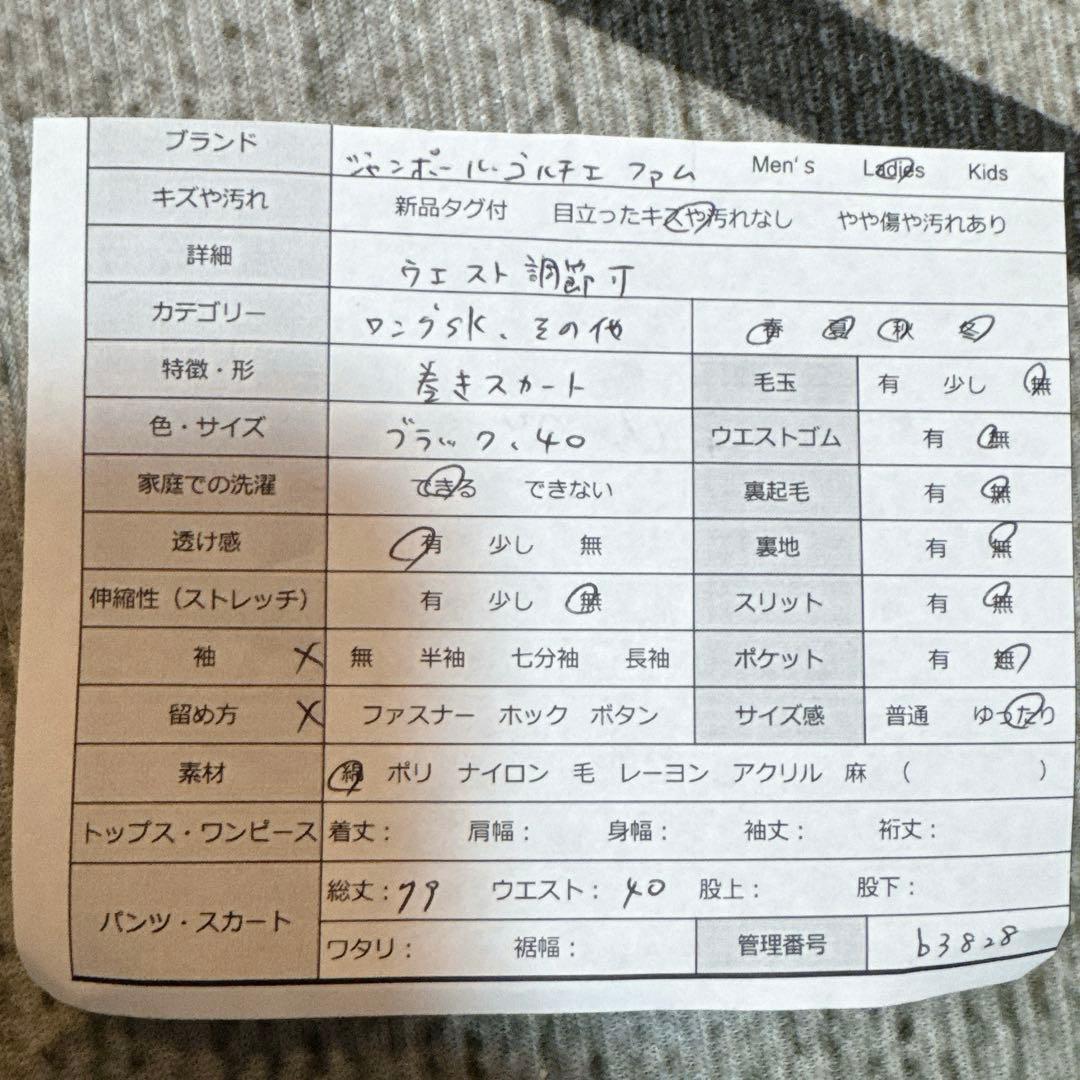 ブランド ジャンポール・ゴルチエ ファム Men's Ladies Kids
キズや汚れ 新品タグ付 目立ったキズや汚れなし やや傷や汚れあり
詳細 ウエスト調節可
カテゴリー ロングSK、その他 春 夏 秋 冬
特徴・形 巻きスカート 毛玉 有 少し 無
色・サイズ ブラック、40 ウエストゴム 有 無
家庭での洗濯 できる できない 裏起毛 有 無
透け感 有 少し 無 裏地 有 無
伸縮性（ストレッチ） 有 少し 無 スリット 有 無
袖 × 無 半袖 七分袖 長袖 ポケット 有 無
留め方 × ファスナー ホック ボタン サイズ感 普通 ゆったり
素材 綿 ポリ ナイロン 毛 レーヨン アクリル 麻 （ ）
トップス・ワンピース 着丈： 肩幅： 身幅： 袖丈： 裄丈：
パンツ・スカート 総丈：79 ウエスト：40 股上： 股下：
ワタリ： 裾幅： 管理番号 b3828